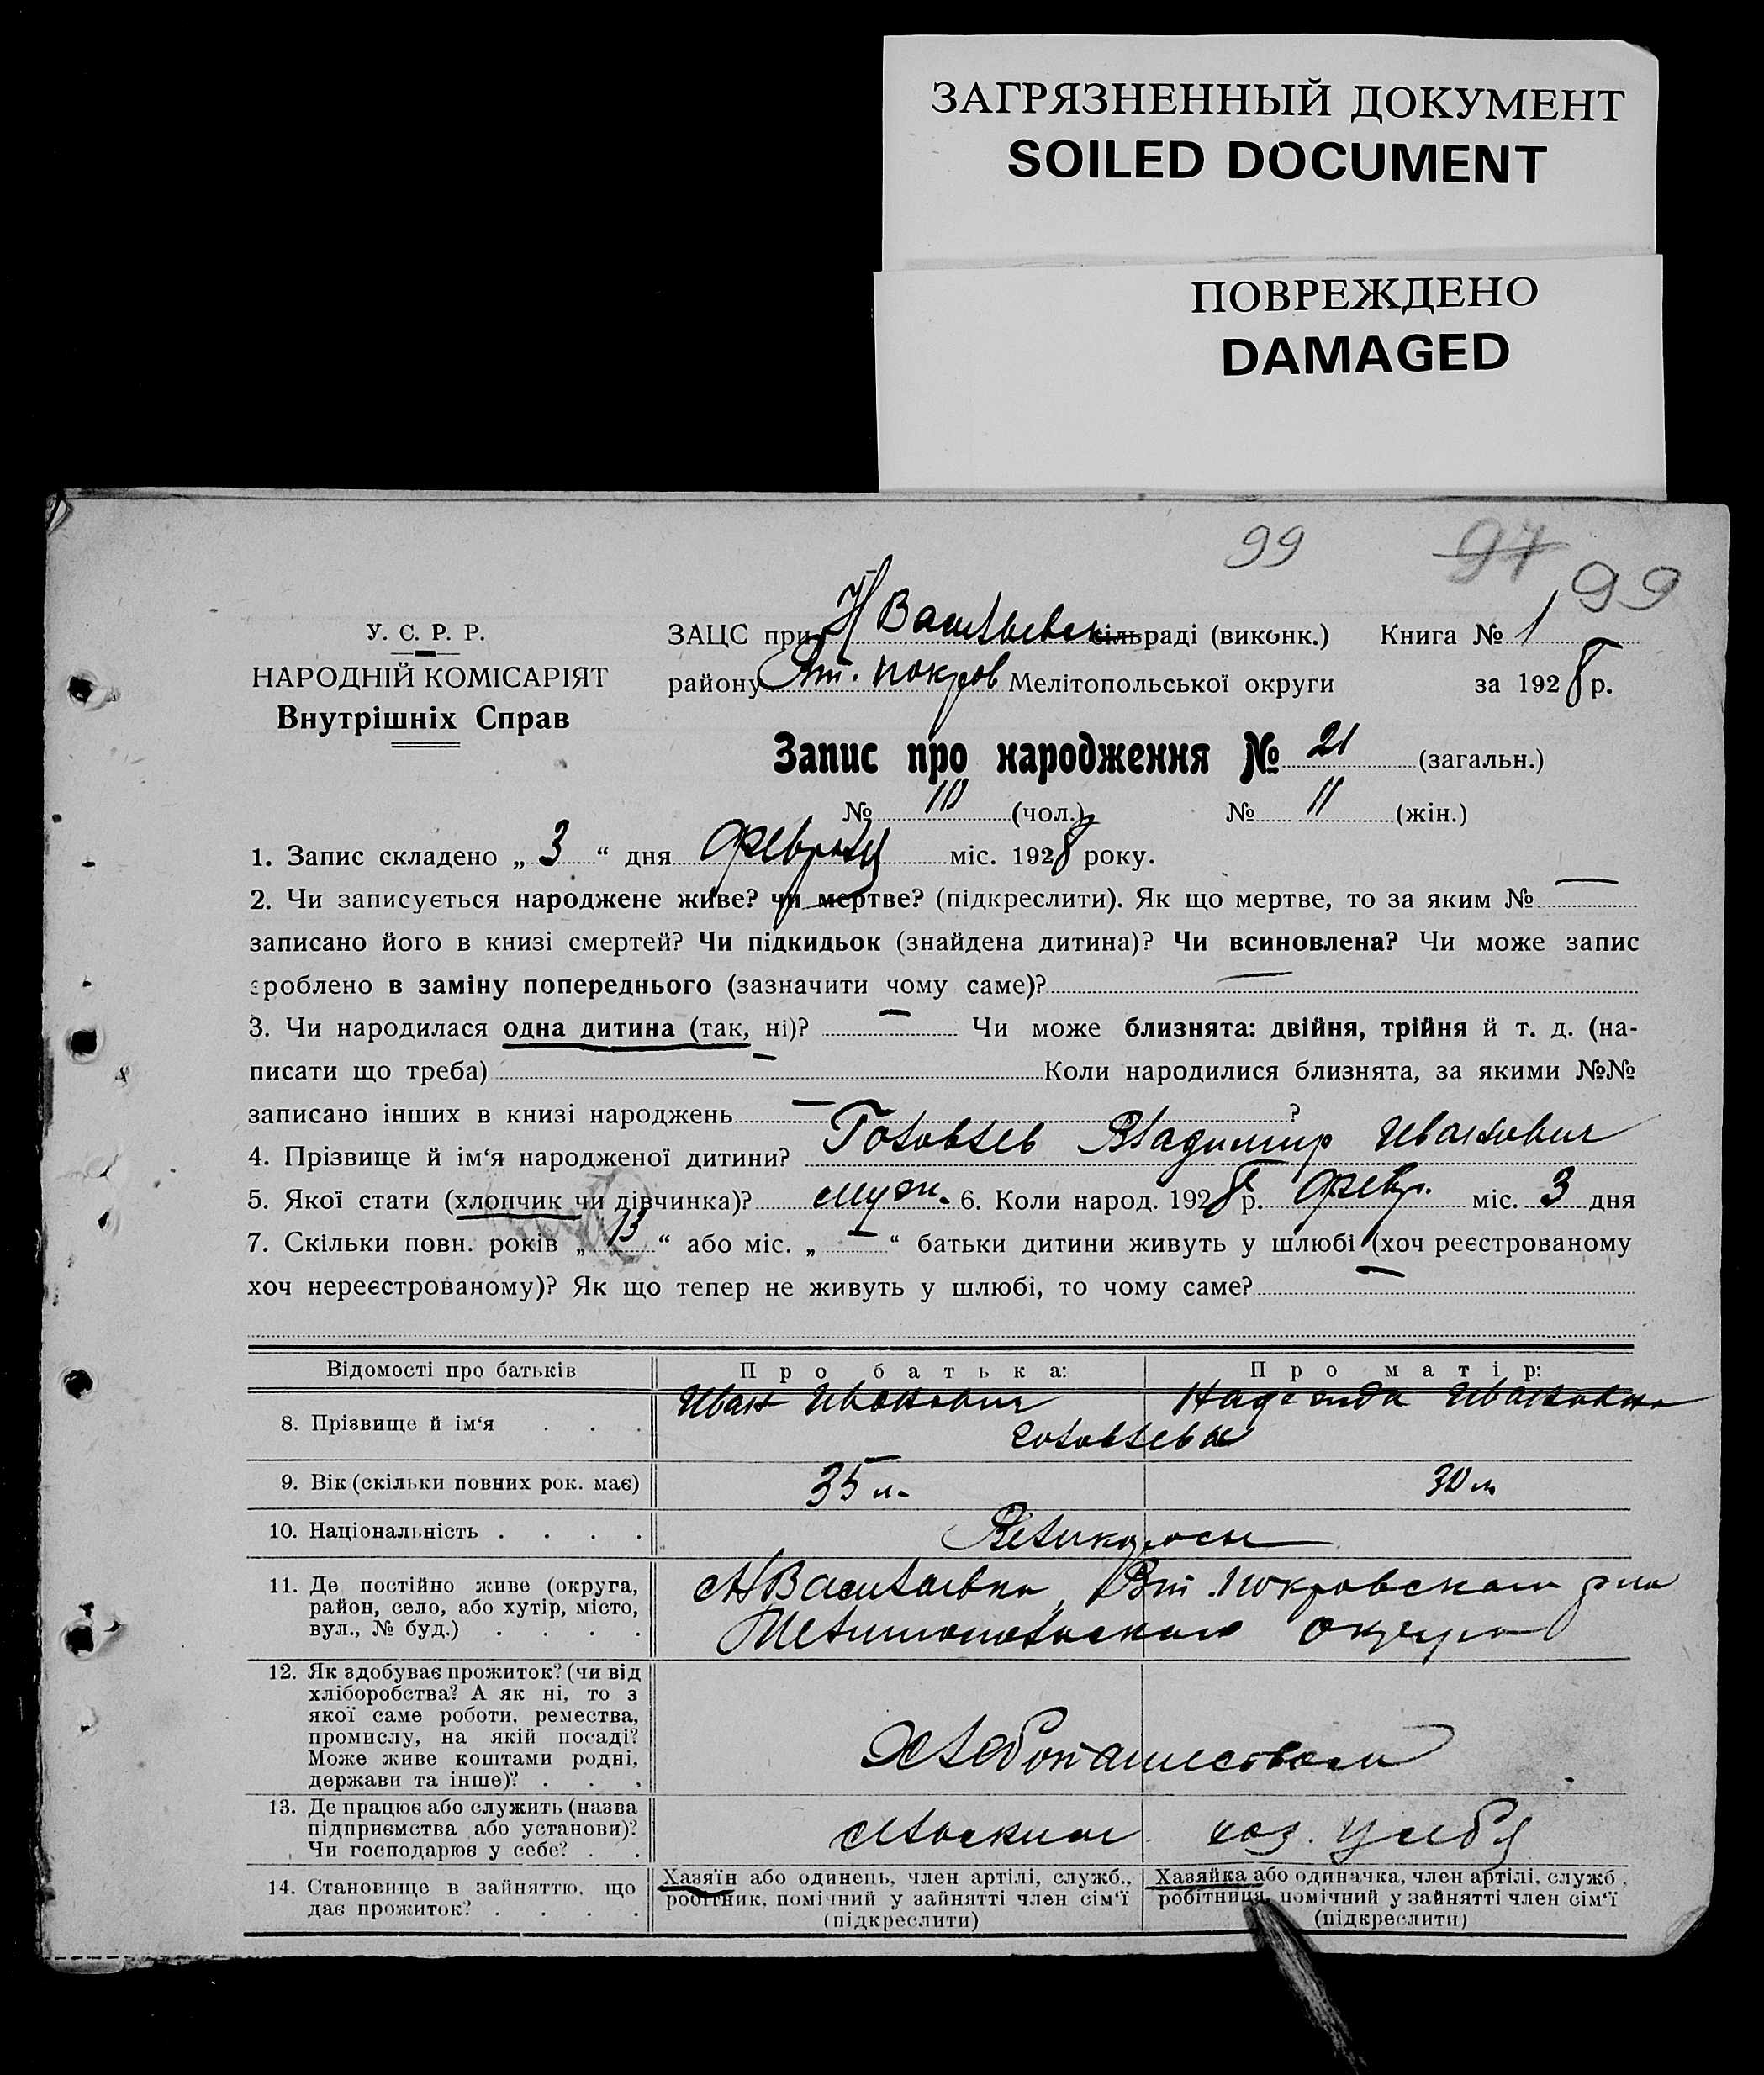 ЗАГРЯЗНЕННЫЙ ДОКУМЕНТ
SOILED DOCUMENT
ПОВРЕЖДЕНО
DAMAGED
99 97 99
У. С. Р. Р.
НАРОДНІЙ КОМІСАРІЯТ
Внутрішніх Справ
ЗАЦС при Н Васильевск сільраді (виконк.) Книга № 1
району Вт. покров Мелітопольської округи за 1928 р.
Запис про народження № 21 (загальн.)
№ 10 (чол.) № 11 (жін.)
1. Запис складено „ 3 “ дня Февраля міс. 1928 року.
2. Чи записується народжене живе? чи мертве? (підкреслити). Як що мертве, то за яким № —
записано його в книзі смертей? Чи підкидьок (знайдена дитина)? Чи всиновлена? Чи може запис
зроблено в заміну попереднього (зазначити чому саме)? —
3. Чи народилася одна дитина (так, ні)? — Чи може близнята: двійня, трійня й т. д. (на-
писати що треба) — Коли народилися близнята, за якими №№
записано інших в книзі народжень — ?
4. Прізвище й ім‘я народженої дитини? Головлев Владимир Иванович
5. Якої стати (хлопчик чи дівчинка)? муж. 6. Коли народ. 1928 р. Февр. міс. 3 дня
7. Скільки повн. років „ 13 “ або міс. „ — “ батьки дитини живуть у шлюбі (хоч реєстрованому
хоч нереєстрованому)? Як що тепер не живуть у шлюбі, то чому саме? —
Відомості про батьків Про батька: Про матір:
8. Прізвище й ім‘я . . . Иван Иванович Надежда Ивановна
Головлевы
9. Вік (скільки повних рок. має) 35 л. 30 л
10. Національність . . . . Великоросы
11. Де постійно живе (округа,
район, село, або хутір, місто,
вул., № буд.) . . . .
Н Васильевка, Вт. Покровского р-на
Мелитопольского округа
12. Як здобуває прожиток? (чи від
хліборобства? А як ні, то з
якої саме роботи, ремества,
промислу, на якій посаді?
Може живе коштами родні,
держави та інше)? . . .
Хлебопашеством
13. Де працює або служить (назва
підприємства або установи)?
Чи господарює у себе? . .
сельским хоз. у себя
14. Становище в зайняттю, що
дає прожиток? . . . .
Хазяїн або одинець, член артілі, служб.,
робітник, помічний у зайнятті член сім‘ї
(підкреслити)
Хазяйка або одиначка, член артілі, служб.,
робітниця, помічний у зайнятті член сім‘ї
(підкреслити)